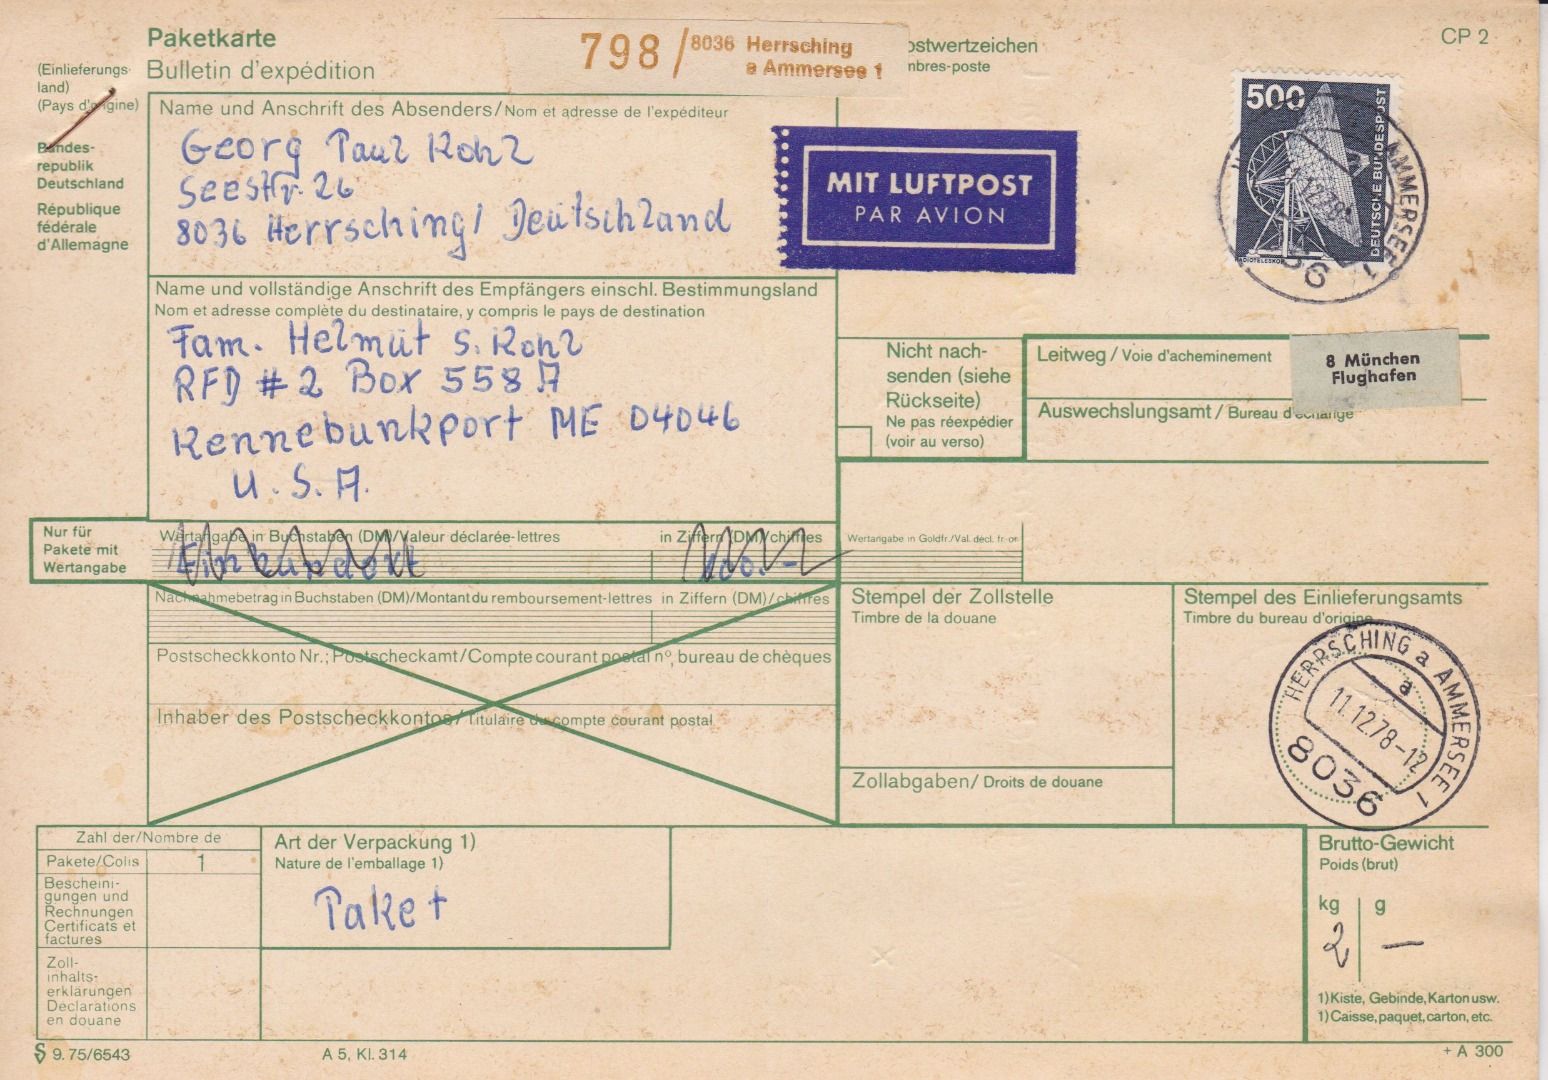 Paketkarte
Bulletin d'expédition
798 / 8036 Herrsching
a Ammersee 1
ostwertzeichen
mbres-poste
CP 2
(Einlieferungs-
land)
(Pays d'origine)
Bundes-
republik
Deutschland
République
fédérale
d'Allemagne
Name und Anschrift des Absenders/Nom et adresse de l'expéditeur
Georg Paul Kohl
Seestr. 26
8036 Herrsching/ Deutschland
MIT LUFTPOST
PAR AVION
500
DEUTSCHE BUNDESPOST
RADIOTELESKOP
AMMERSEE 1
36
Name und vollständige Anschrift des Empfängers einschl. Bestimmungsland
Nom et adresse complète du destinataire, y compris le pays de destination
Fam. Helmut S. Kohl
RFD # 2 Box 558 A
Kennebunkport ME 04046
U.S.A.
Nicht nach-
senden (siehe
Rückseite)
Ne pas réexpédier
(voir au verso)
Leitweg / Voie d'acheminement
8 München
Flughafen
Auswechslungsamt / Bureau d'échange
Nur für
Pakete mit
Wertangabe
Wertangabe in Buchstaben (DM)/Valeur déclarée-lettres
in Ziffern (DM)/chiffres
Wertangabe in Goldfr./Val. décl. fr.-or
Einhundert
100.-
Nachnahmebetrag in Buchstaben (DM)/Montant du remboursement-lettres in Ziffern (DM)/chiffres
Postscheckkonto Nr.; Postscheckamt/Compte courant postal nº, bureau de chèques
Inhaber des Postscheckkontos/Titulaire du compte courant postal
Stempel der Zollstelle
Timbre de la douane
Zollabgaben/ Droits de douane
Stempel des Einlieferungsamts
Timbre du bureau d'origine
HERRSCHING a AMMERSEE 1
a
11.12.78-12
8036
Zahl der/Nombre de
Pakete/Colis
1
Bescheini-
gungen und
Rechnungen
Certificats et
factures
Zoll-
inhalts-
erklärungen
Déclarations
en douane
Art der Verpackung 1)
Nature de l'emballage 1)
Paket
Brutto-Gewicht
Poids (brut)
kg g
2 —
1) Kiste, Gebinde, Karton usw.
1) Caisse, paquet, carton, etc.
9.75/6543
A 5, Kl. 314
+ A 300